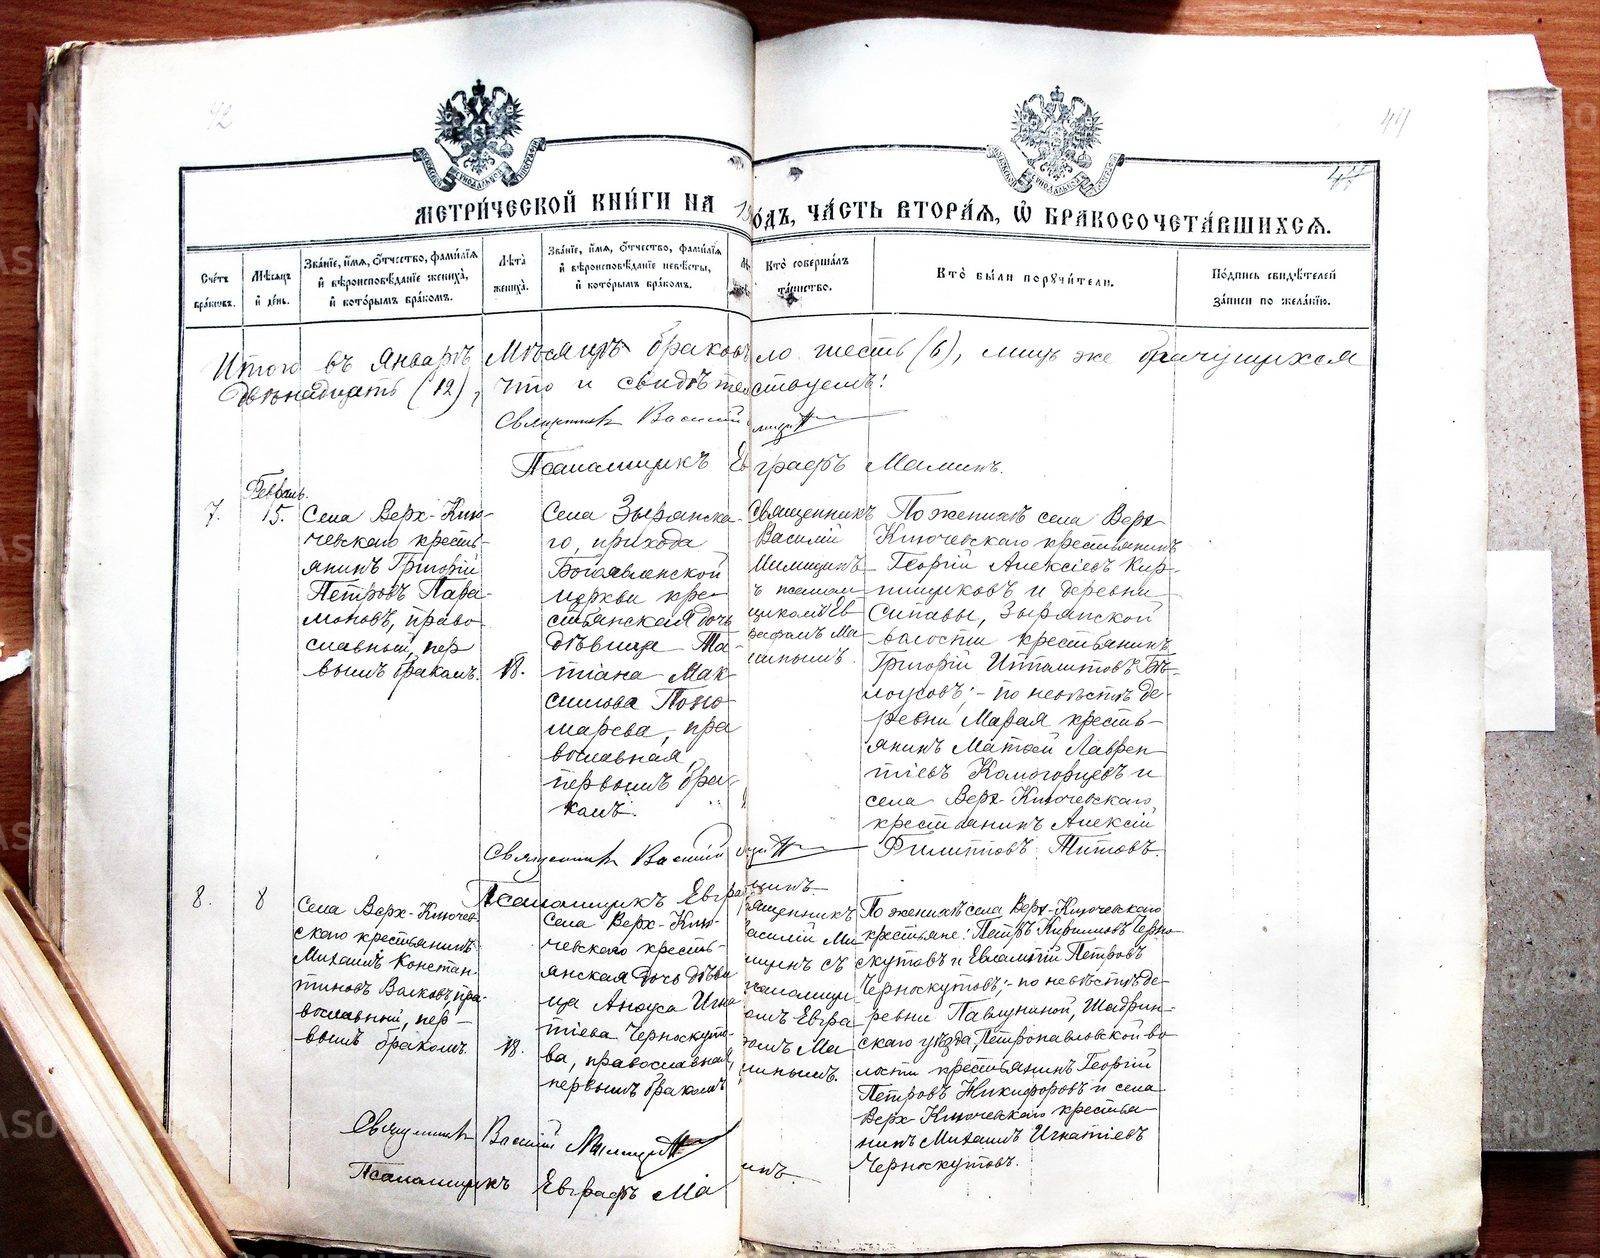 42
44
МЕТРИ́ЧЕСКОЙ КНИ́ГИ НА 19 ОДЪ, ЧА́СТЬ ВТОРА́Я, Ѽ БРАКОСОЧЕТА́ВШИХСЯ.
Сче́тъ бра́ковъ.
Мѣ́сяцъ и҆ де́нь.
Зва́нїе, и҆́мя, ѻ҆́тчество, фами́лїя
и҆ вѣроисповѣ́данїе жениха̀,
и҆ кото́рымъ бра́комъ.
Лѣ́та жениха̀.
Зва́нїе, и҆́мя, ѻ҆́тчество, фами́лїя
и҆ вѣроисповѣ́данїе невѣ́сты,
и҆ кото́рымъ бра́комъ.
Кто̀ соверша́лъ
та́инство.
Кто̀ бы́ли порꙋчи́тели.
По́дпись свидѣ́телей
за́писи по жела́нїю.
Итого въ Январѣ Мѣсяцѣ браковъ ло шесть (6), лицъ же брачущихся
двѣнадцать (12), что и свидѣте ствуемъ:
Священникъ Василій
Псаломщикъ Ев графъ Маминъ.
7.
Февраль.
15.
Села Верх-Клю-
чевскаго кресть-
янинъ Григорій
Петровъ Пара-
моновъ, право-
славный, пер
вымъ бракомъ.
18.
Села Зырянска-
го, прихода
Богоявленской
церкви кре-
стьянская дочь
дѣвица Та-
тіана Мак-
симова Поно-
марева, пра
вославная,
первымъ бра-
комъ.
Священникъ
Василій
ъ псалом
щикомъ Ев
рафомъ Ма
минымъ.
По женихѣ села Верх
Ключевскаго крестьянинъ
Георгій Алексіевъ Кир-
пищиковъ и деревни
Зырянской
волости крестьянинъ
Григорій Ипполитовъ Бѣ-
лоусовъ; - по невѣстѣ де-
ревни Марай кресть-
янинъ Матѳей Лаврен
тіевъ Коmогорцевъ и
села Верх-Ключевскаго
крестьянинъ Алексій
Филипповъ Титовъ.
Священникъ Василій
Псаломщикъ Евгра
8.
8
Села Верх-Ключев
скаго крестьянинъ
Михаилъ Констан-
тиновъ Волковъ, пра-
вославный, пер-
вымъ бракомъ.
18.
Села Верх-Клю-
чевского кресть-
янская дочь дѣви
ца Анфуса Игна
тіева Черноскуто-
ва, православная,
первымъ бракомъ
ященникъ
асилій Ми
щенъ съ
саломщи-
омъ Евгра
омъ Ма-
минымъ.
По женихѣ села Верх-Ключевскаго
крестьяне: Петръ Кирилловъ Черно-
скутовъ и Евлампій Петровъ
Черноскутовъ; - по невѣстѣ де-
ревни Павлуниной, Шадрин-
скаго уѣзда, Петропавловской во-
лости крестьянинъ Георгій
Петровъ Никифоровъ и села
Верх-Ключевскаго крестья-
нинъ Михаилъ Игнатіевъ
Черноскутовъ.
Священникъ Василій
Псаломщикъ Евграфъ Ма инъ.